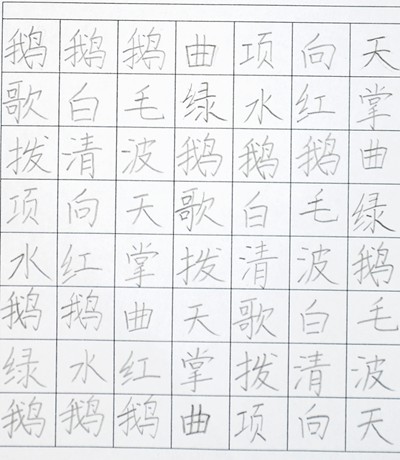 鹅鹅鹅曲项向天
歌白毛绿水红掌
拨清波鹅鹅鹅曲
项向天歌白毛绿
水红掌拨清波鹅
鹅鹅曲天歌白毛
绿水红掌拨清波
鹅鹅鹅曲项向天